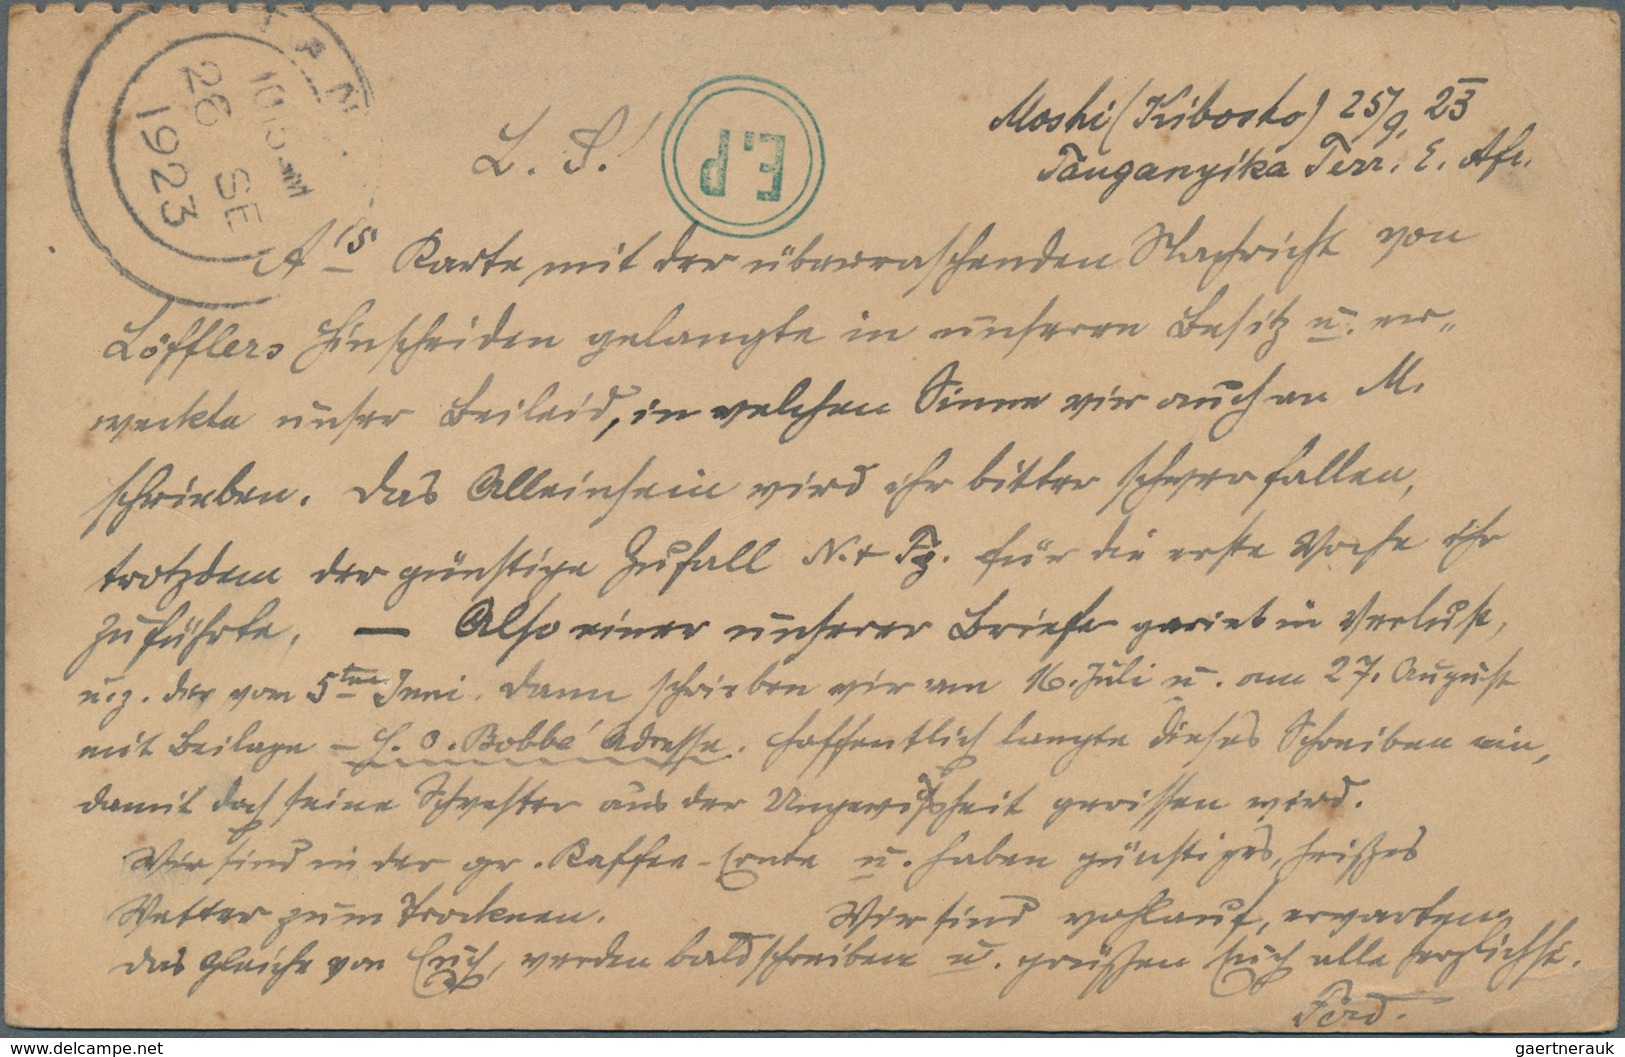 TAN
10 30 AM
26 SE
1923
E.P
Moshi (Kibosho) 25/9. 23
Tanganyika Terr. E. Afr.
L. S.!
A's Karte mit der überraschenden Nachricht von
Löfflers Hinscheiden gelangte in unseren Besitz u. er-
weckte unser Beileid, in welchem Sinne wir auch an M.
schrieben. Das Alleinsein wird ihr bitter schwer fallen,
trotzdem der günstige Zufall N. + Fz. für die erste Woche ihr
zuführte. — Also einer unserer Briefe geriet in Verlust,
u. z. der vom 5ten Juni. Dann schrieben wir am 16. Juli u. am 27. August
mit Beilage – H. O. Bobbe' Adresse. Hoffentlich langte dieses Schreiben ein,
damit doch seine Schwester aus der Ungewißheit gerissen wird.
Wir sind in der gr. Kaffee-Ernte u. haben günstiges, heißes
Wetter zum Trocknen. Wir sind wohlauf, erwarten
das Gleiche von Euch, werden bald schreiben u. grüßen Euch alle herzlichst.
Ferd.
gaertnerauk
www.delcampe.net